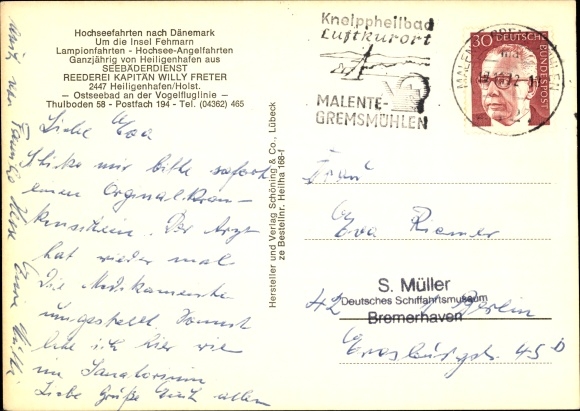 Hochseefahrten nach Dänemark
Um die Insel Fehmarn
Lampionfahrten - Hochsee-Angelfahrten
Ganzjährig von Heiligenhafen aus
SEEBÄDERDIENST
REEDEREI KAPITÄN WILLY FRETER
2447 Heiligenhafen/Holst.
– Ostseebad an der Vogelfluglinie –
Thulboden 58 - Postfach 194 - Tel. (04362) 465
Liebe Eva
Schike mir bitte sofort
einen Orginalkran-
kenschein. Der Arzt
hat wieder mal
die Medikamente
umgestellt. Sonst
lebe ich hier wie
im Sanatorium
Liebe Grüße Euch allen
Hersteller und Verlag Schöning & Co., Lübeck
ze Bestellnr. Heilha 168-f
Kneippheilbad
Luftkurort
MALENTE-
GREMSMÜHLEN
30 DEUTSCHE BUNDESPOST
Frau
Eva Riemer
S. Müller
Deutsches Schiffahrtsmuseum
Bremerhaven
42 Berlin
45 b